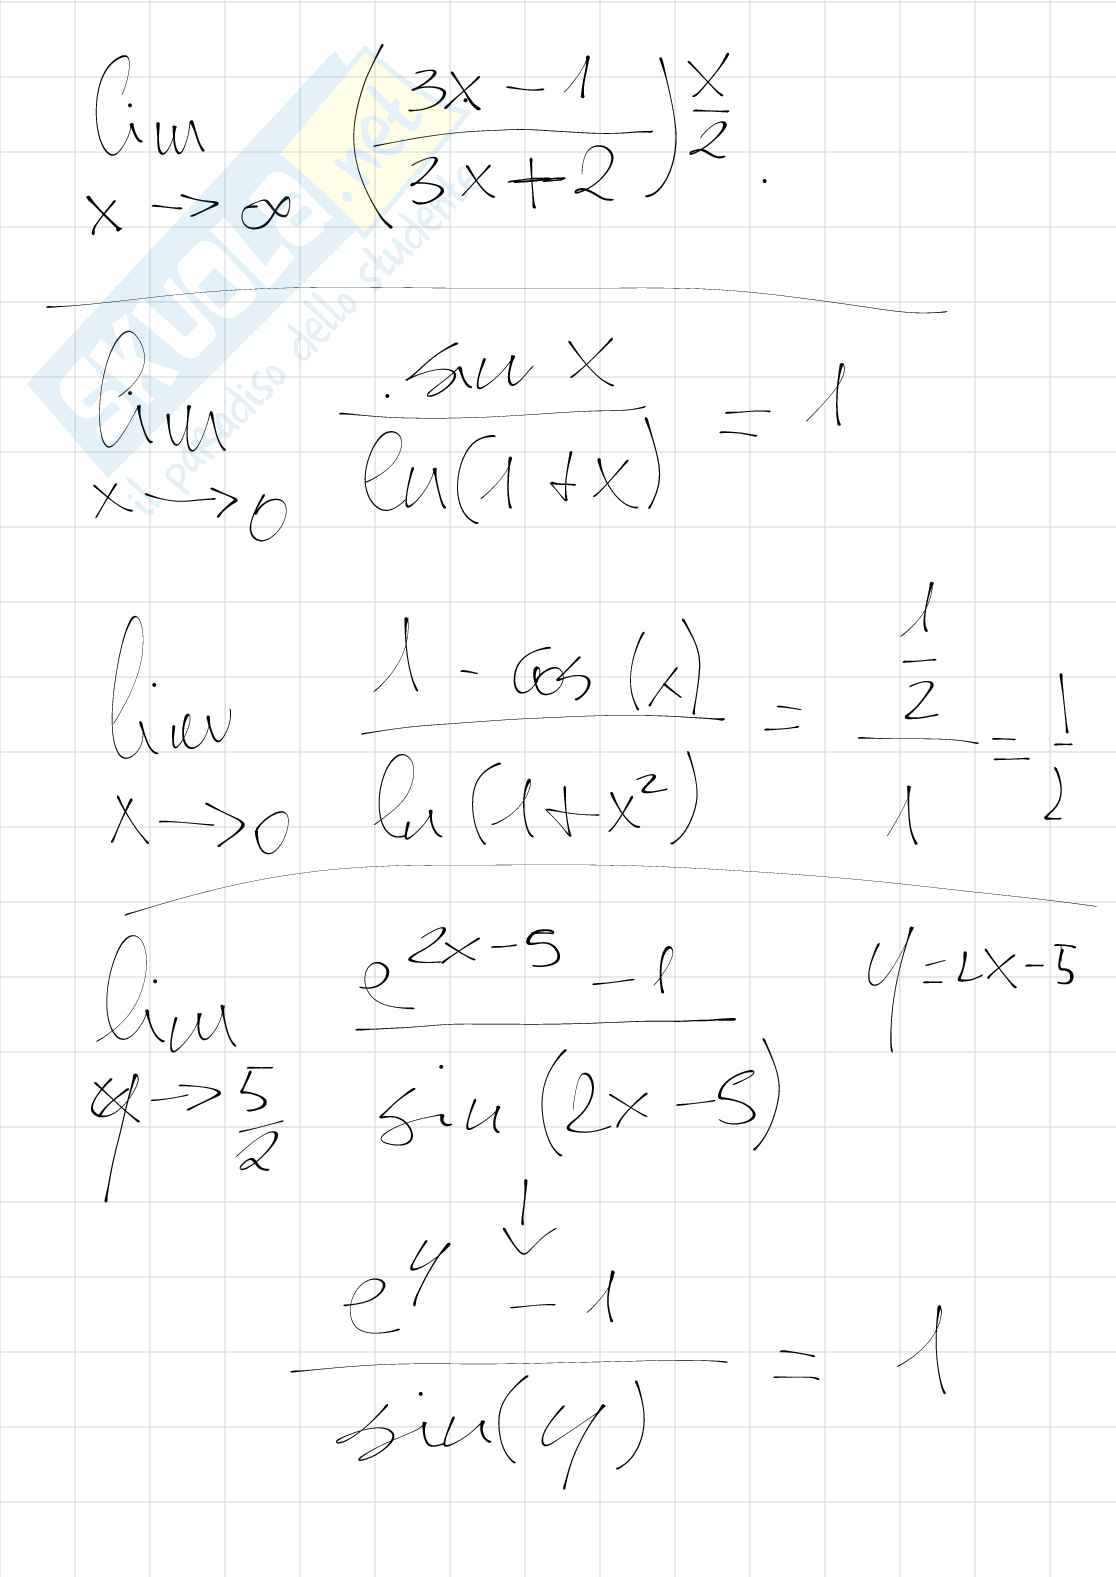 lim x→∞ ((3x-1)/(3x+2))^(x/2) .
lim x→0 sin x / ln(1+x) = 1
lim x→0 (1 - cos(x)) / ln(1+x²) = (1/2)/1 = 1/2
lim y→5/2 (e^(2x-5) - 1) / sin(2x-5) y=2x-5
↓
(e^y - 1) / sin(y) = 1
SKUOLA.net
il paradiso dello studente